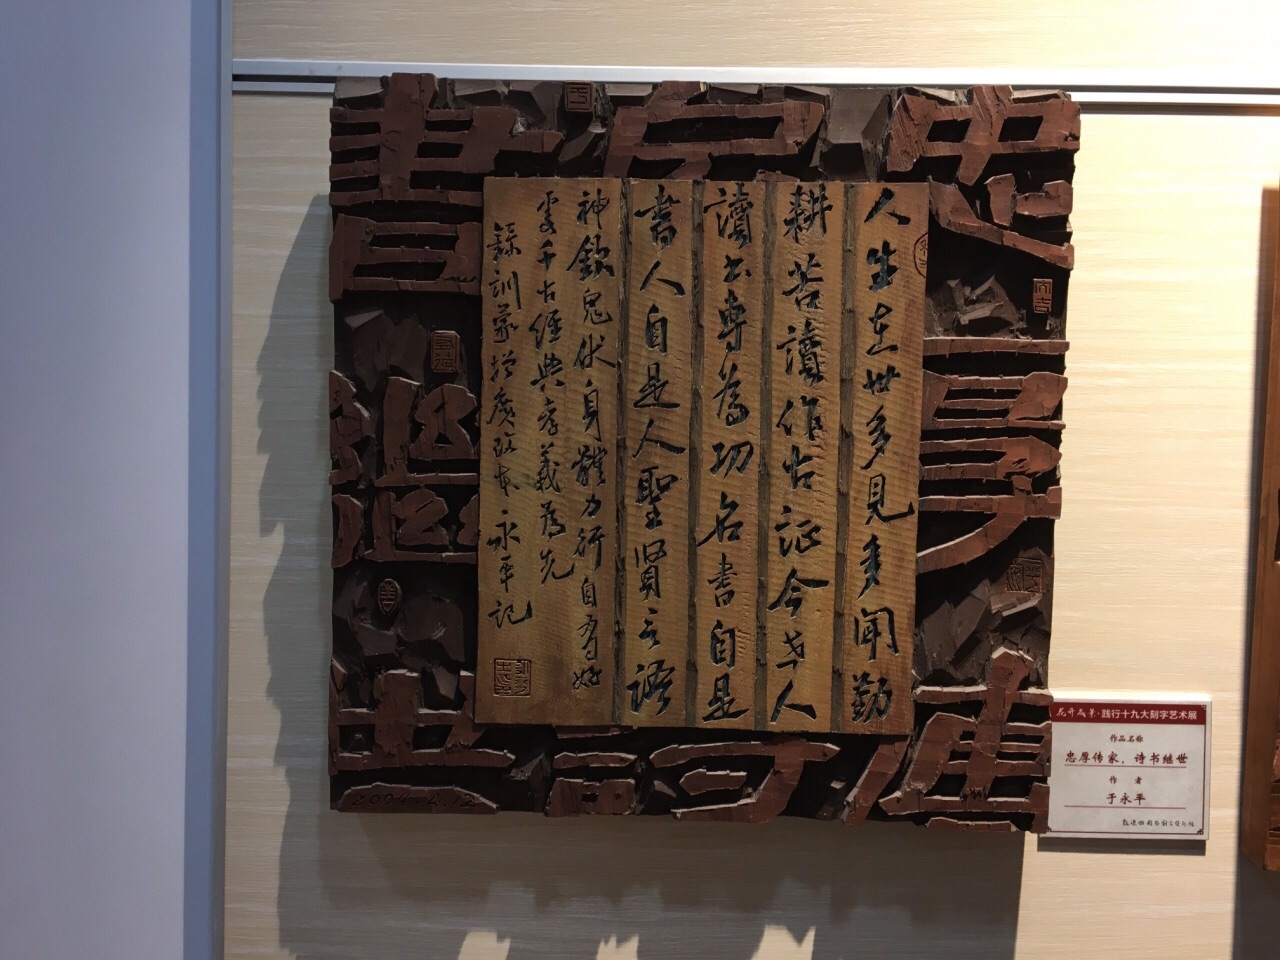 忠厚傳家詩書繼世
人生在世多見多聞勤
耕苦讀作古証今古人
讀书專為功名書自是
書人自是人聖賢言語
神欽鬼伏身體力行自有好
處千古經典孝義為先
錄訓蒙增廣改本永平記
2004.4.12
花开成景·践行十九大刻字艺术展
作品名称
忠厚传家，诗书继世
作者
于永平